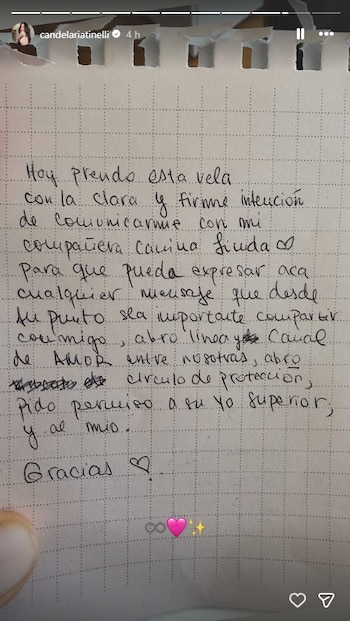 candelariatinelli 4 h
Hoy prendo esta vela
con la clara y firme intención
de comunicarme con mi
compañera canina Linda ♡
para que pueda expresar aca
cualquier mensaje que desde
su punto sea importante compartir
conmigo, abro linea y Canal
de AMOR entre nosotras, abro
circulo de protección,
pido permiso a su Yo superior,
y al mio.
Gracias ♡.
♾🩷✨